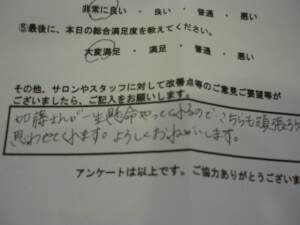 非常に良い ・ 良い ・ 普通 ・ 悪い
⑤最後に、本日の総合満足度を教えてください。
大変満足 ・ 満足 ・ 普通 ・ 悪い
その他、サロンやスタッフに対して改善点等のご意見ご要望等が
ございましたら、ご記入をお願いします。
加藤さんが一生懸命やってくれるので こちらも頑張ろうと
思わせてくれます。よろしくおねがいします。
アンケートは以上です。ご協力ありがとうございま